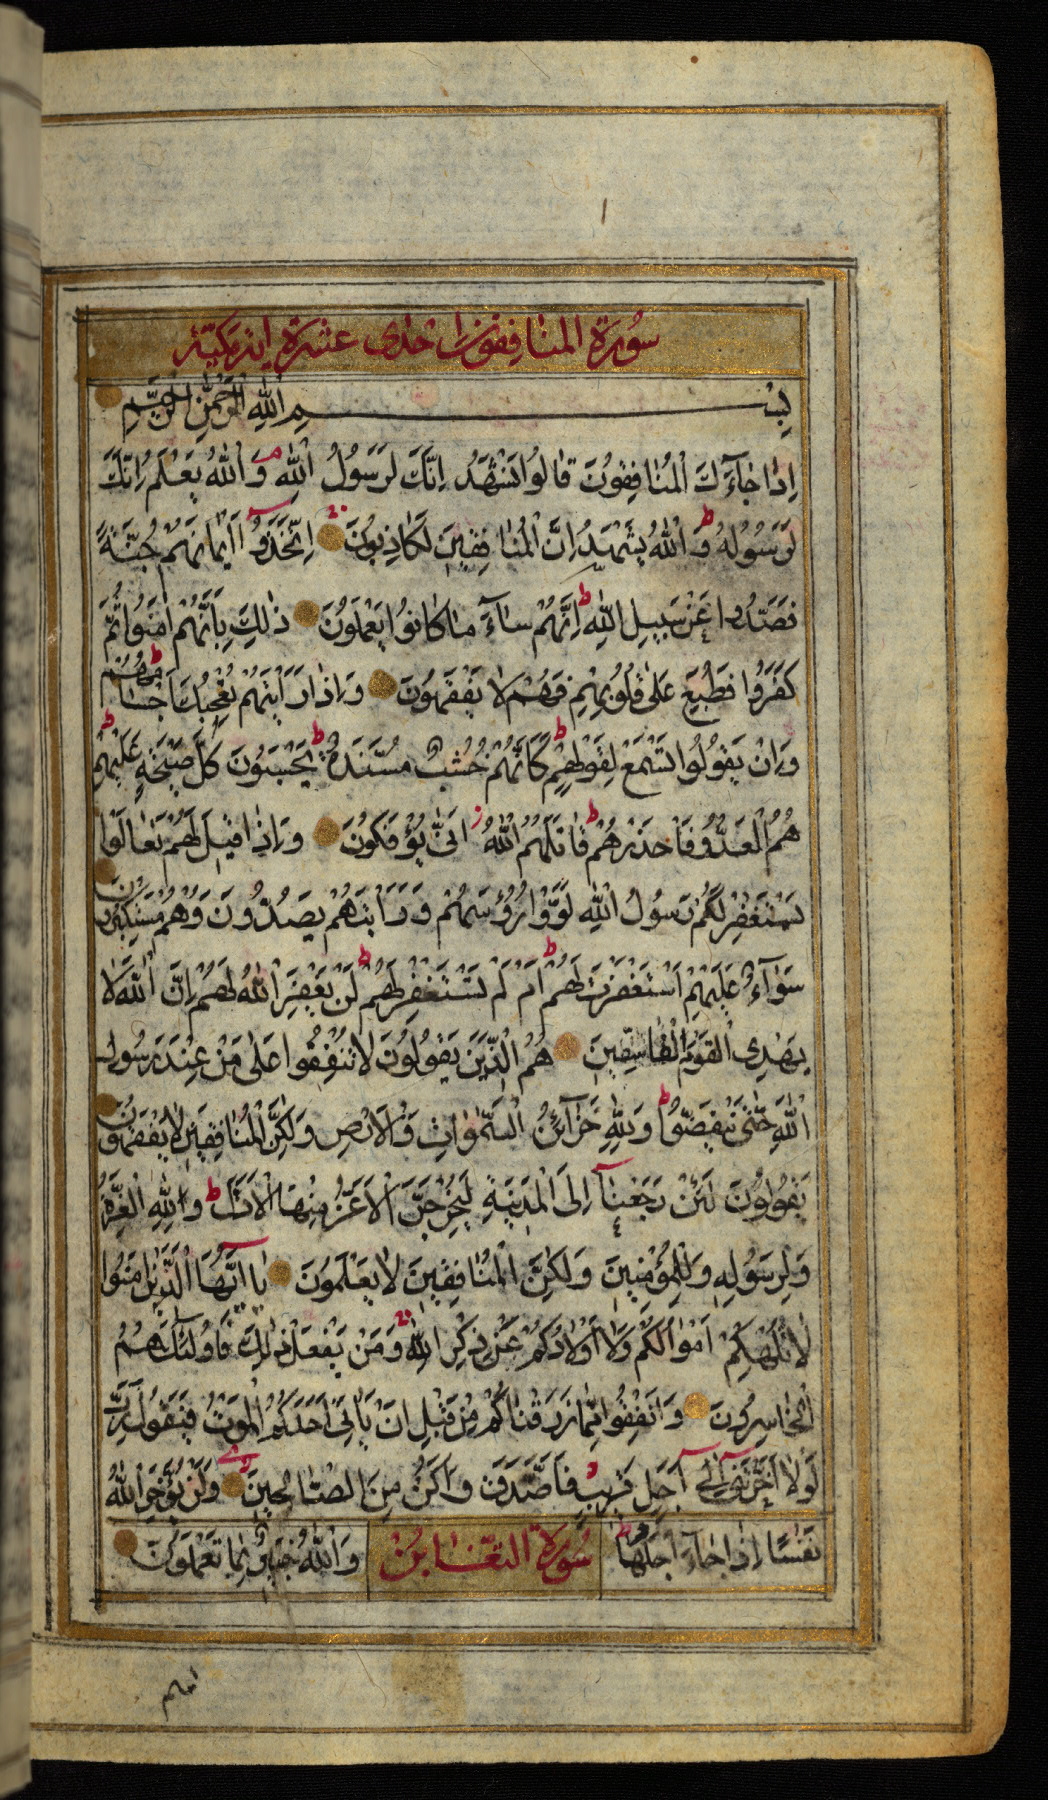 سُورَة المنٰافِقون احدٰى عشرة اية مكية
بِسْمِ اللّٰهِ الرَّحْمٰنِ الرَّحِيْمِ
اِذٰا جٰٓاءَكَ الْمُنٰافِقُونَ قٰالُوا نَشْهَدُ اِنَّكَ لَرَسُولُ اللّٰهِ وَاللّٰهُ يَعْلَمُ اِنَّكَ
لَرَسُولُهُ وَاللّٰهُ يَشْهَدُ اِنَّ الْمُنٰافِقِينَ لَكٰاذِبُونَ اِتَّخَذُوٓا اَيْمٰانَهُمْ جُنَّةً
فَصَدُّوا عَنْ سَبِيلِ اللّٰهِ اِنَّهُمْ سٰٓاءَ مٰا كٰانُوا يَعْمَلُونَ ذٰلِكَ بِاَنَّهُمْ اٰمَنُوا ثُمَّ
كَفَرُوا فَطُبِعَ عَلٰى قُلُوبِهِمْ فَهُمْ لٰا يَفْقَهُونَ وَاِذٰا رَاَيْتَهُمْ تُعْجِبُكَ اَجْسٰامُهُمْ
وَاِنْ يَقُولُوا تَسْمَعْ لِقَوْلِهِمْ كَاَنَّهُمْ خُشُبٌ مُسَنَّدَةٌ يَحْسَبُونَ كُلَّ صَيْحَةٍ عَلَيْهِمْ
هُمُ الْعَدُوُّ فَاحْذَرْهُمْ قٰاتَلَهُمُ اللّٰهُ اَنّٰى يُؤْفَكُونَ وَاِذٰا قِيلَ لَهُمْ تَعٰالَوْا
يَسْتَغْفِرْ لَكُمْ رَسُولُ اللّٰهِ لَوَّوْا رُؤُسَهُمْ وَرَاَيْتَهُمْ يَصُدُّونَ وَهُمْ مُسْتَكْبِرُونَ
سَوٰٓاءٌ عَلَيْهِمْ اَسْتَغْفَرْتَ لَهُمْ اَمْ لَمْ تَسْتَغْفِرْ لَهُمْ لَنْ يَغْفِرَ اللّٰهُ لَهُمْ اِنَّ اللّٰهَ لٰا
يَهْدِى الْقَوْمَ الْفٰاسِقِينَ هُمُ الَّذِينَ يَقُولُونَ لٰا تُنْفِقُوا عَلٰى مَنْ عِنْدَ رَسُولِ
اللّٰهِ حَتّٰى يَنْفَضُّوا وَلِلّٰهِ خَزٰٓائِنُ السَّمٰوٰاتِ وَالْاَرْضِ وَلٰكِنَّ الْمُنٰافِقِينَ لٰا يَفْقَهُونَ
يَقُولُونَ لَئِنْ رَجَعْنٰٓا اِلَى الْمَدِينَةِ لَيُخْرِجَنَّ الْاَعَزُّ مِنْهَا الْاَذَلَّ وَلِلّٰهِ الْعِزَّةُ
وَلِرَسُولِهِ وَلِلْمُؤْمِنِينَ وَلٰكِنَّ الْمُنٰافِقِينَ لٰا يَعْلَمُونَ يٰٓا اَيُّهَا الَّذِينَ اٰمَنُوا
لٰا تُلْهِكُمْ اَمْوٰالُكُمْ وَلٰٓا اَوْلٰادُكُمْ عَنْ ذِكْرِ اللّٰهِ وَمَنْ يَفْعَلْ ذٰلِكَ فَاُولٰٓئِكَ هُمُ
الْخٰاسِرُونَ وَاَنْفِقُوا مِمّٰا رَزَقْنٰاكُمْ مِنْ قَبْلِ اَنْ يَاْتِىَ اَحَدَكُمُ الْمَوْتُ فَيَقُولَ رَبِّ
لَوْلٰٓا اَخَّرْتَنِىٓ اِلٰٓى اَجَلٍ قَرِيبٍ فَاَصَّدَّقَ وَاَكُنْ مِنَ الصّٰالِحِينَ وَلَنْ يُؤَخِّرَ اللّٰهُ
نَفْسًا اِذٰا جٰٓاءَ اَجَلُهٰا سُورَة التغٰابن وَاللّٰهُ خَبِيرٌ بِمٰا تَعْمَلُونَ